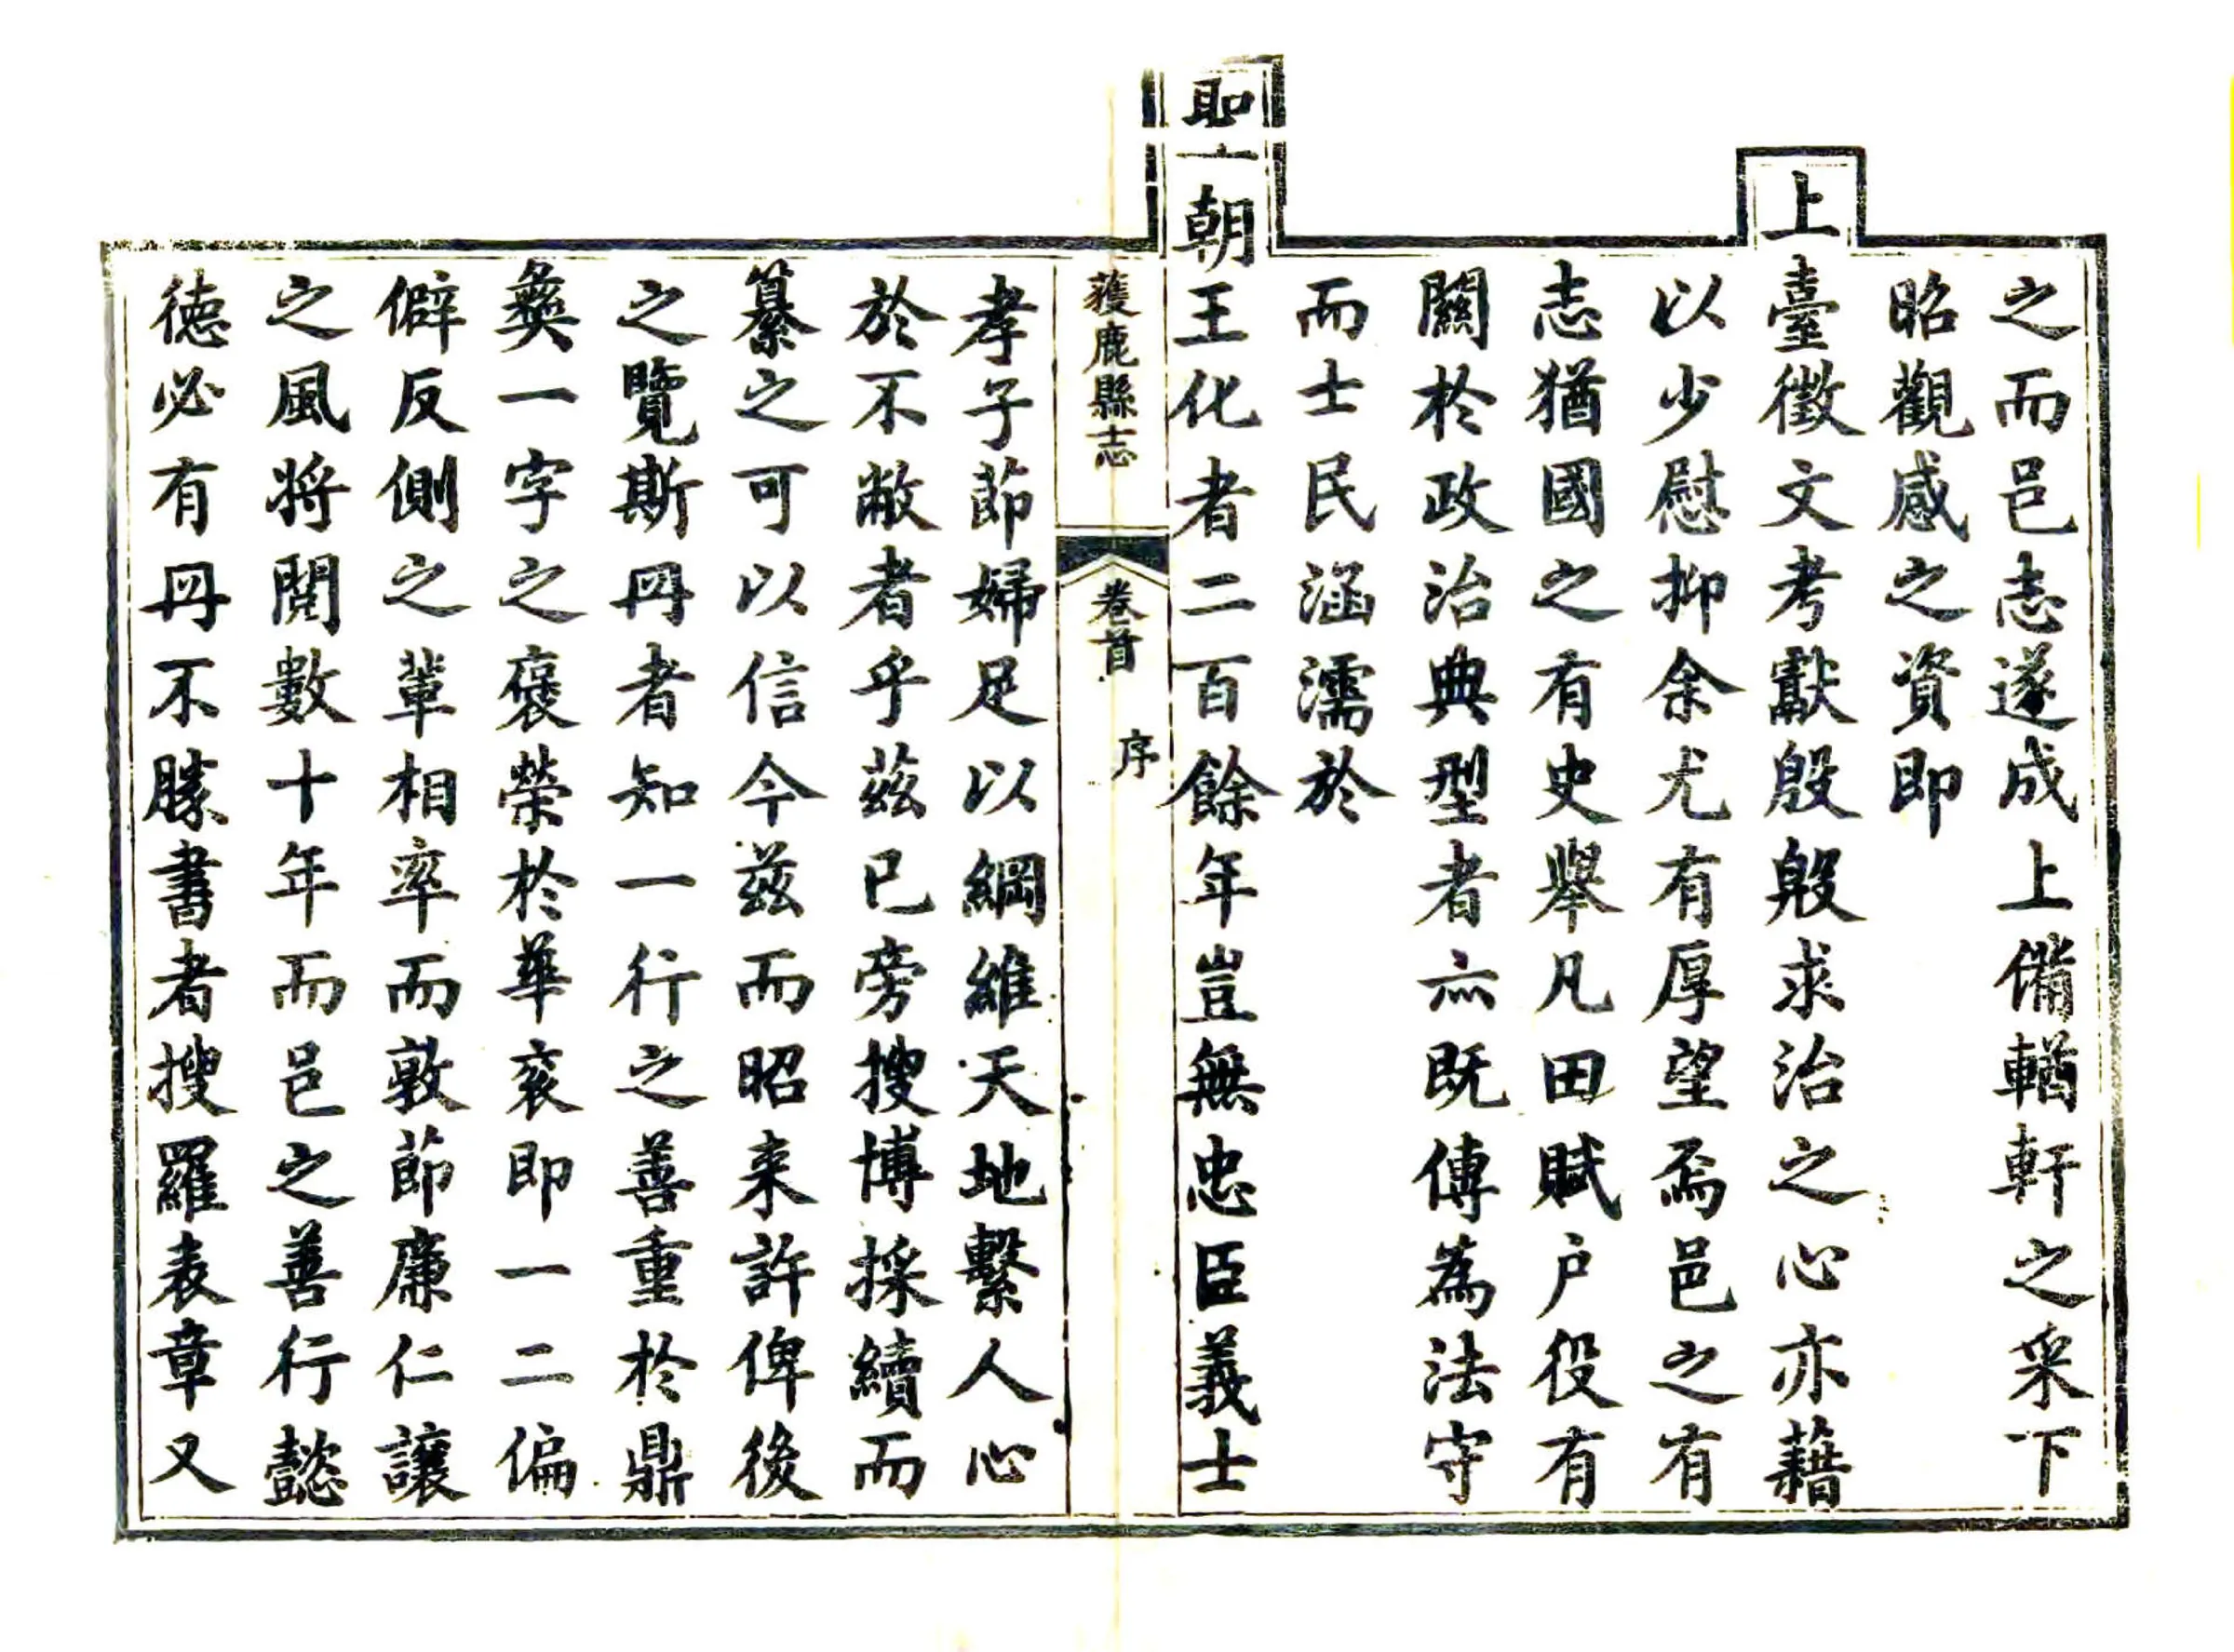 之而邑志遂成上備輶軒之采下
昭觀感之資即
上臺徵文考獻殷殷求治之心亦藉
以少慰抑余尤有厚望焉邑之有
志猶國之有史舉凡田賦户役有
關於政治典型者亦既傳為法守
而士民涵濡於
聖朝王化者二百餘年豈無忠臣義士
獲鹿縣志 卷首 序
孝子節婦足以綱維天地繫人心
於不敝者乎茲已旁搜博採續而
纂之可以信今茲而昭来許俾後
之覽斯冊者知一行之善重於鼎
彜一字之褒榮於華衮即一二偏
僻反側之輩相率而敦節廉仁讓
之風將閱數十年而邑之善行懿
德必有冊不勝書者搜羅表章又